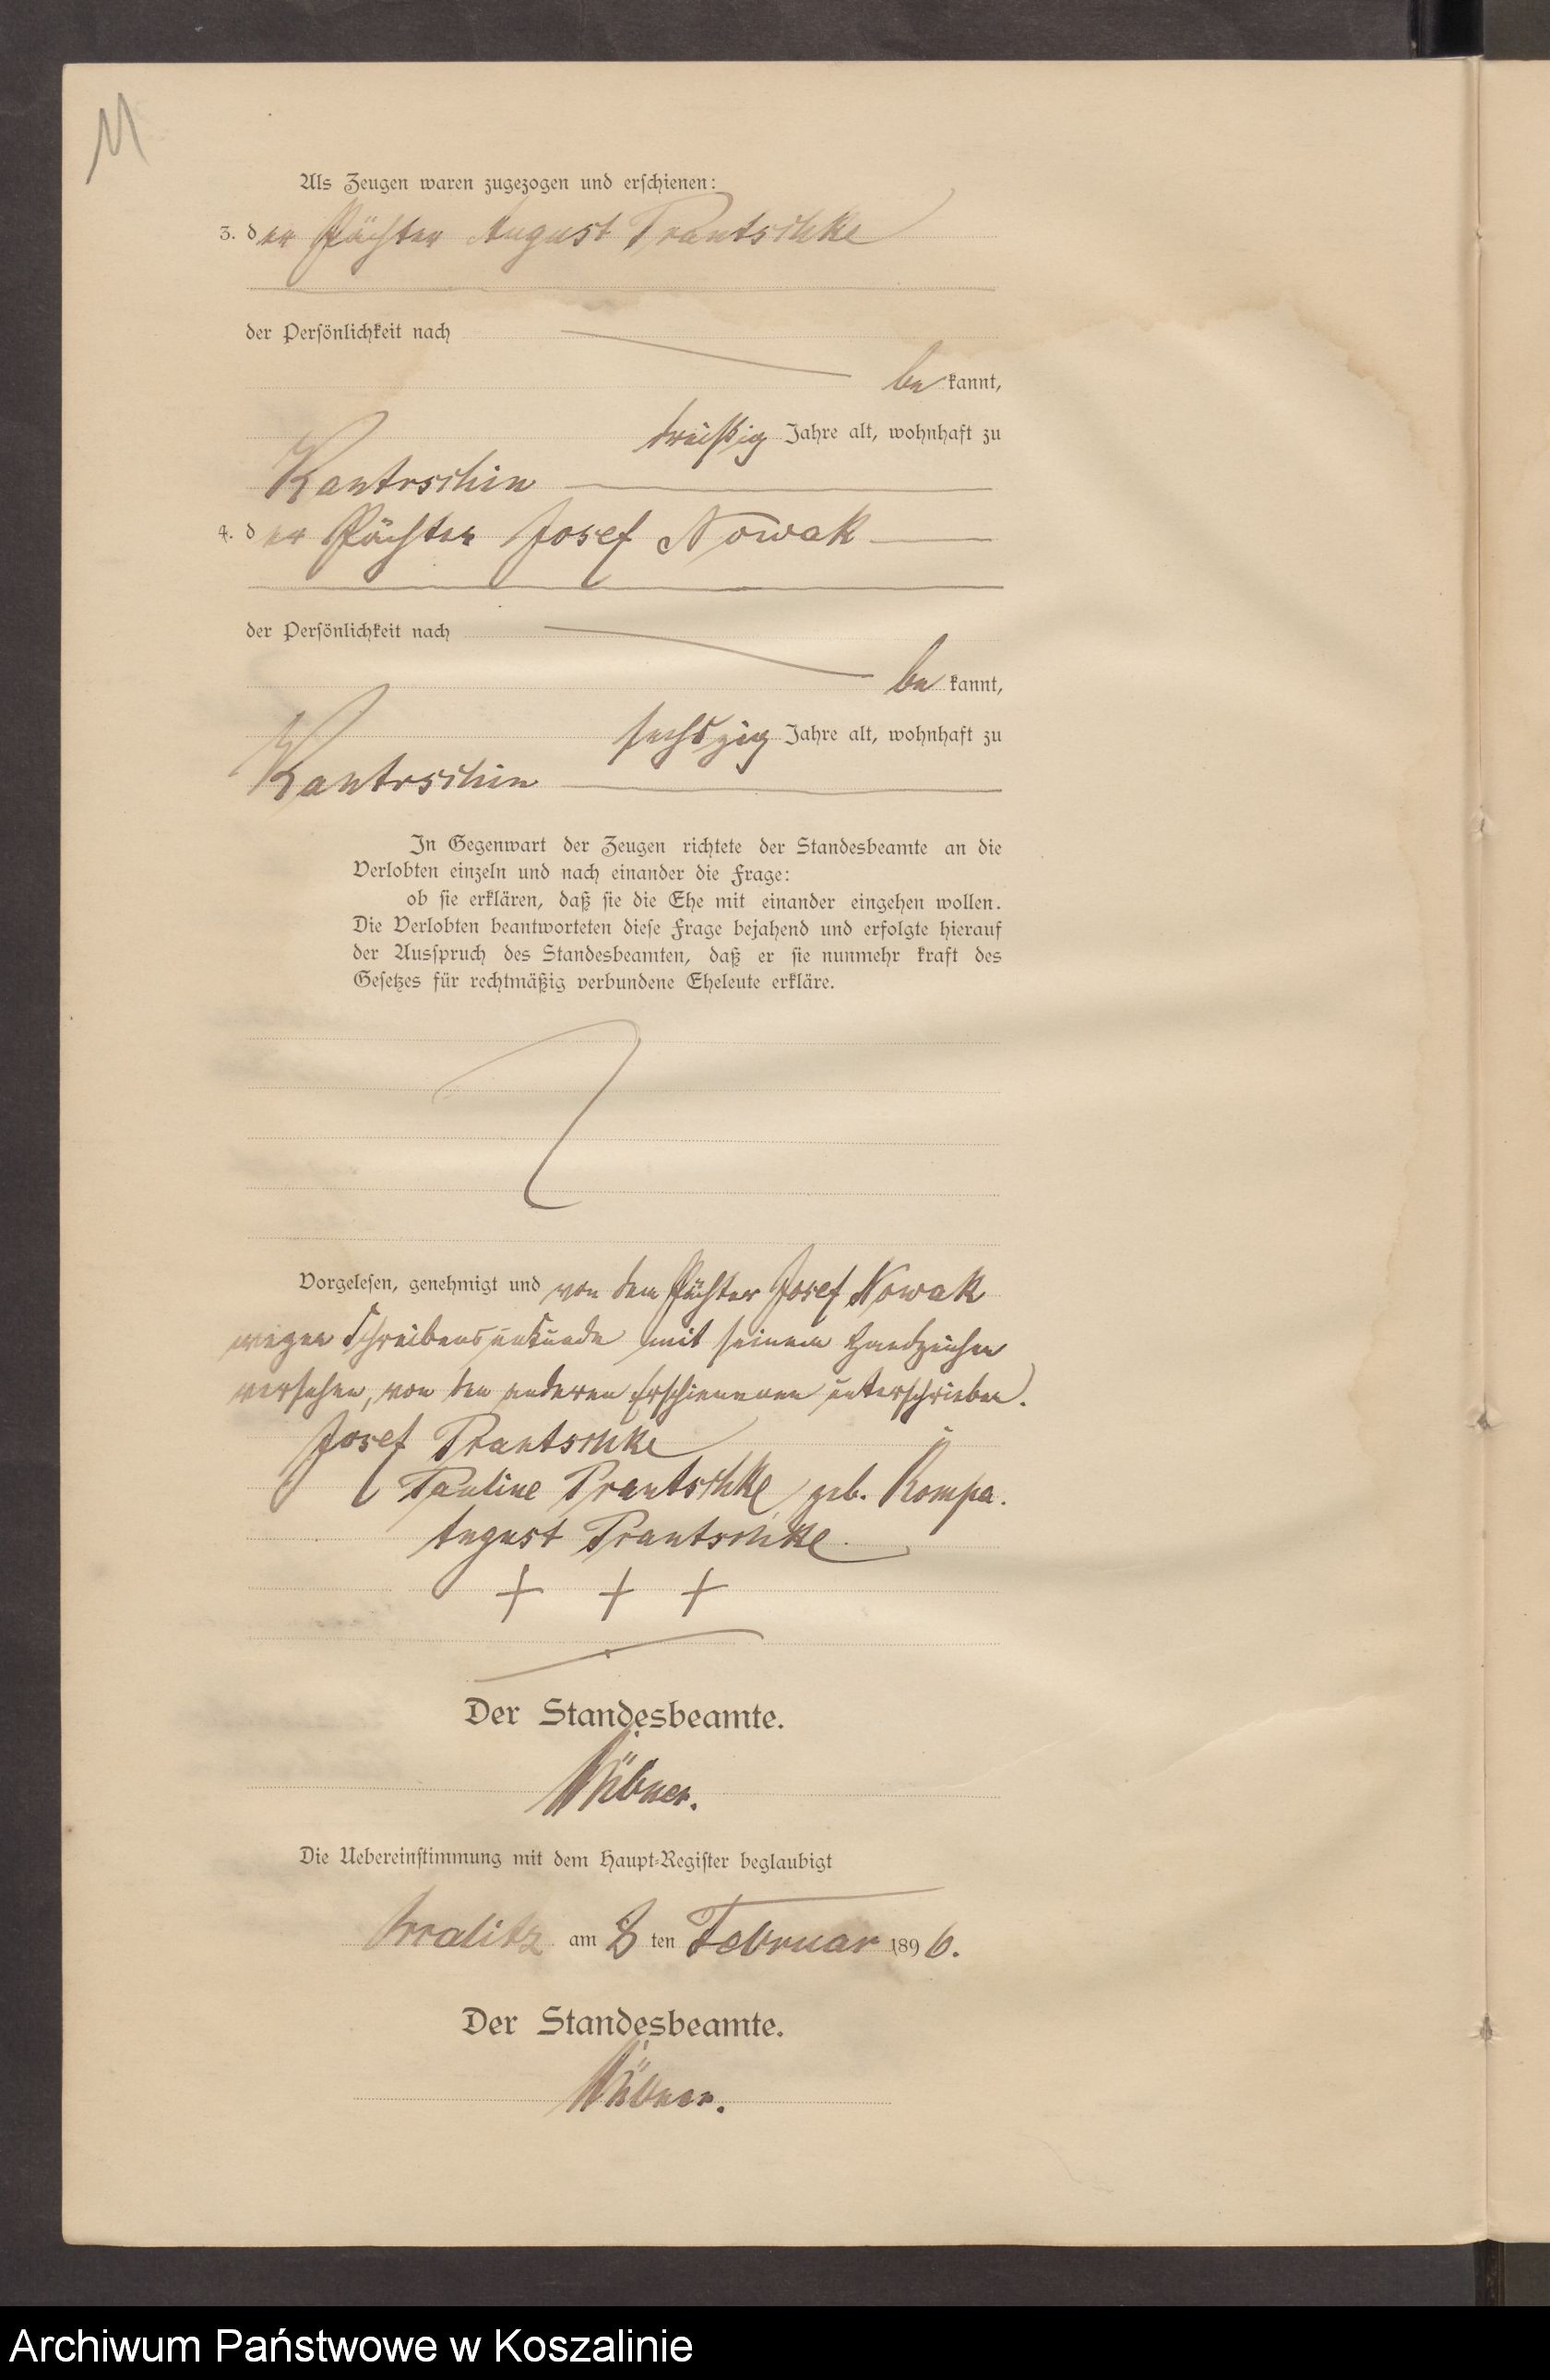 11
Als Zeugen waren zugezogen und erschienen:
3. der Pächter August Prantschke
der Persönlichkeit nach
bekannt,
dreißig Jahre alt, wohnhaft zu
Kantrschin
4. der Pächter Josef Nowak
der Persönlichkeit nach
bekannt,
sechszig Jahre alt, wohnhaft zu
Kantrschin
In Gegenwart der Zeugen richtete der Standesbeamte an die
Verlobten einzeln und nach einander die Frage:
ob sie erklären, daß sie die Ehe mit einander eingehen wollen.
Die Verlobten beantworteten diese Frage bejahend und erfolgte hierauf
der Ausspruch des Standesbeamten, daß er sie nunmehr kraft des
Gesetzes für rechtmäßig verbundene Eheleute erkläre.
Vorgelesen, genehmigt und von dem Pächter Josef Nowak
wegen Schreibensunkunde mit seinem Handzeichen
versehen, von den anderen Erschienenen unterschrieben.
Josef Prantschke
Pauline Prantschke geb. Rompa.
August Prantschke
+ + +
Der Standesbeamte.
Die Uebereinstimmung mit dem Haupt-Register beglaubigt
am 8ten Februar 1896.
Der Standesbeamte.
Archiwum Państwowe w Koszalinie